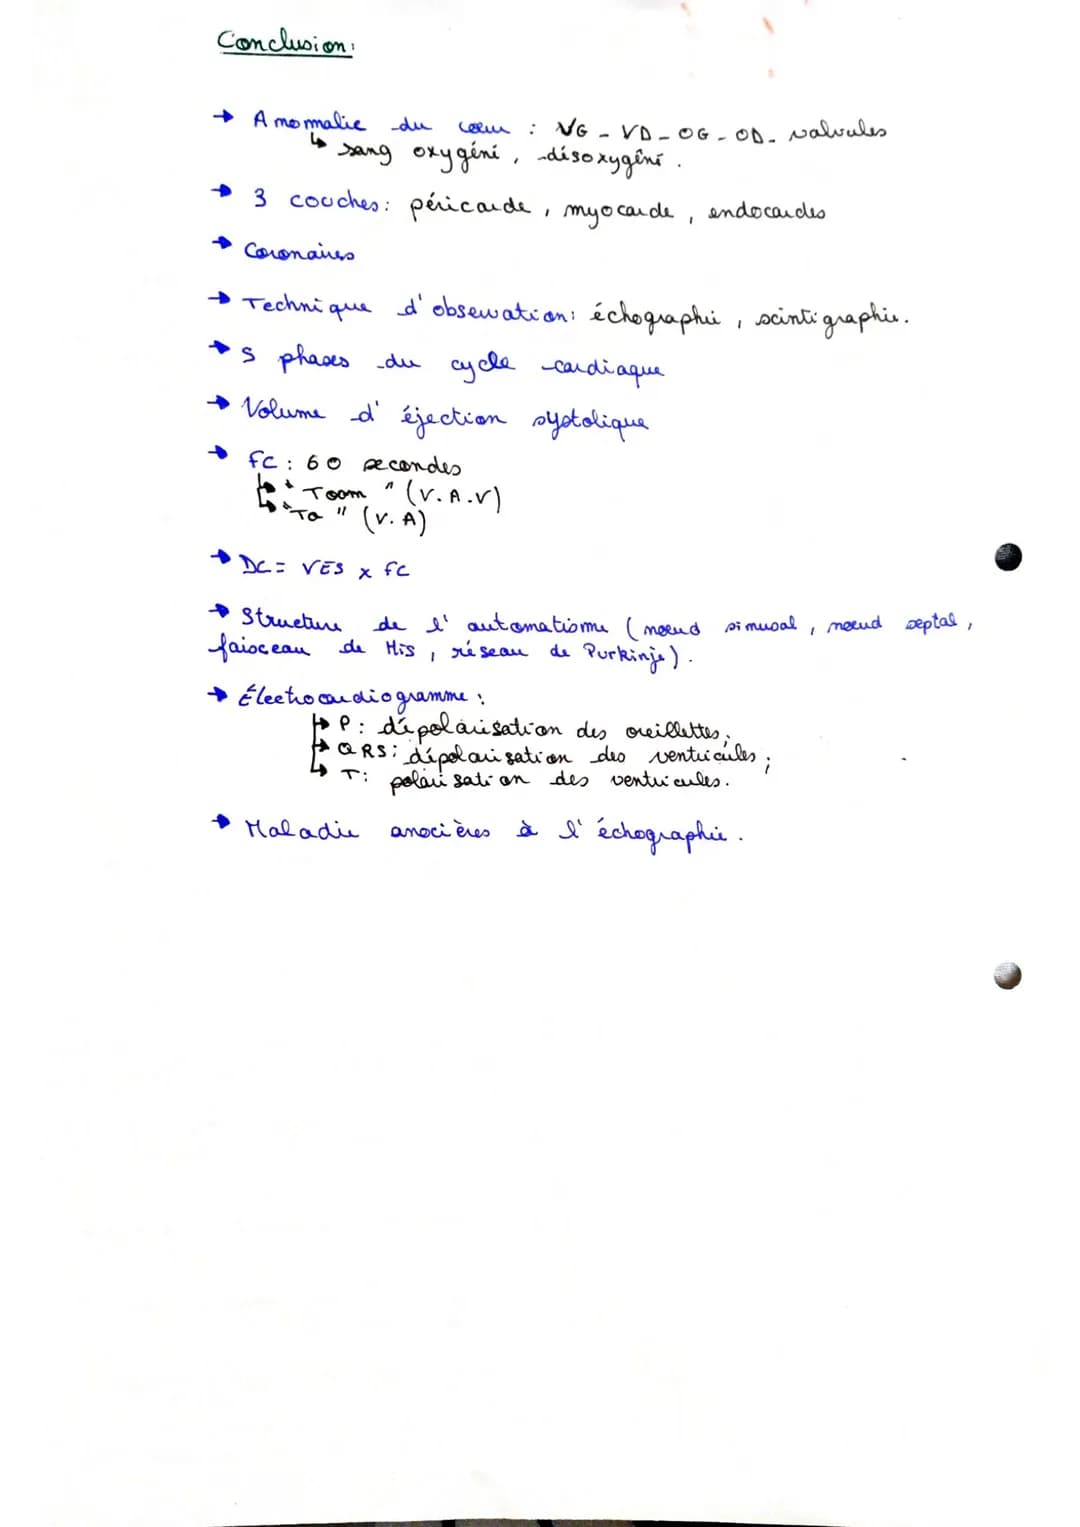 Conclusion:
→ Anomalie du cœur : VG - VD - OG - OD - valvules
↳ sang oxygéné, désoxygéné.
→ 3 couches: péricarde, myocarde, endocardes
→ Coronaires
→ Technique d'observation: échographie, scintigraphie.
→ 5 phases du cycle cardiaque
→ Volume d'éjection systolique
→ fc : 60 secondes
↳ "Toom" (V.A.V)
↳ "Ta" (V.A)
→ DC = VES x fc
→ Structure de l'automatisme (nœud sinusal, nœud septal,
faisceau de His, réseau de Purkinje).
→ Électrocardiogramme :
↳ P : dépolarisation des oreillettes;
↳ QRS : dépolarisation des ventricules;
↳ T : polarisation des ventricules.
→ Maladie à l'échographie.